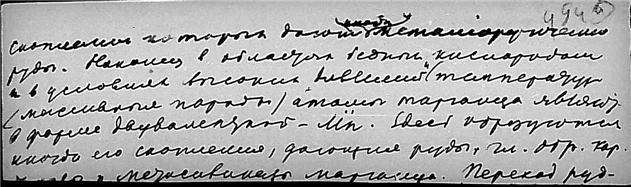 иногда 4945
скопления которых дают метаморфические
руды. Наконец в областях бедных кислородом
и в условиях высоких давлений и температур
(массивные породы) атомы марганца являются
в форме двувалентного – Mn. Здесь образуются
иногда его скопления, дающие руды, гл. обр. кар.
марганца. Переход руд-